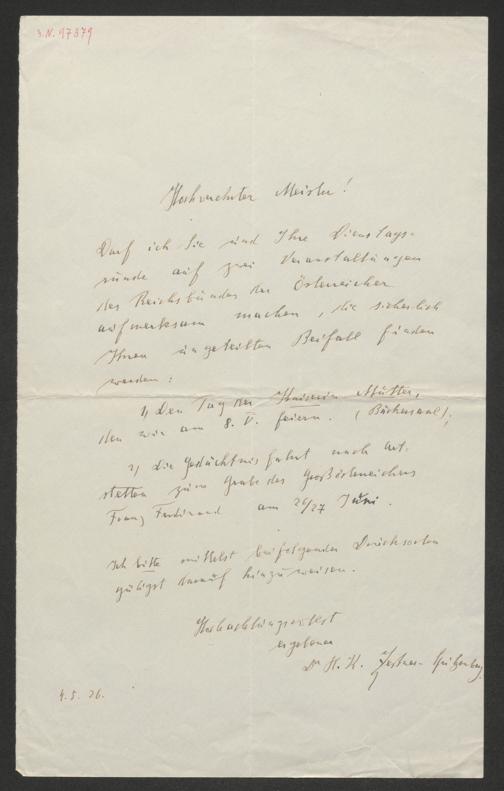 S.N. 97379
Hochverehrter Meister!
Darf ich Sie und Ihre Dienstags-
runde auf zwei Veranstaltungen
des Reichsbundes der Österreicher
aufmerksam machen, die sicherlich
Ihren ungeteilten Beifall finden
werden:
1) Den Tag der Kaiserin Mutter,
den wir am 8. V. feiern. (Büchersaal);
2) Die Gedächtnisfahrt nach Art-
stetten zum Grabe des Großösterreichers
Franz Ferdinand am 26/27 Juni.
Ich bitte mittelst beifolgender Drucksorten
gütigst darauf hinzuweisen.
Hochachtungsvollst
ergebener
Dr H. K.
4. 5. 26.